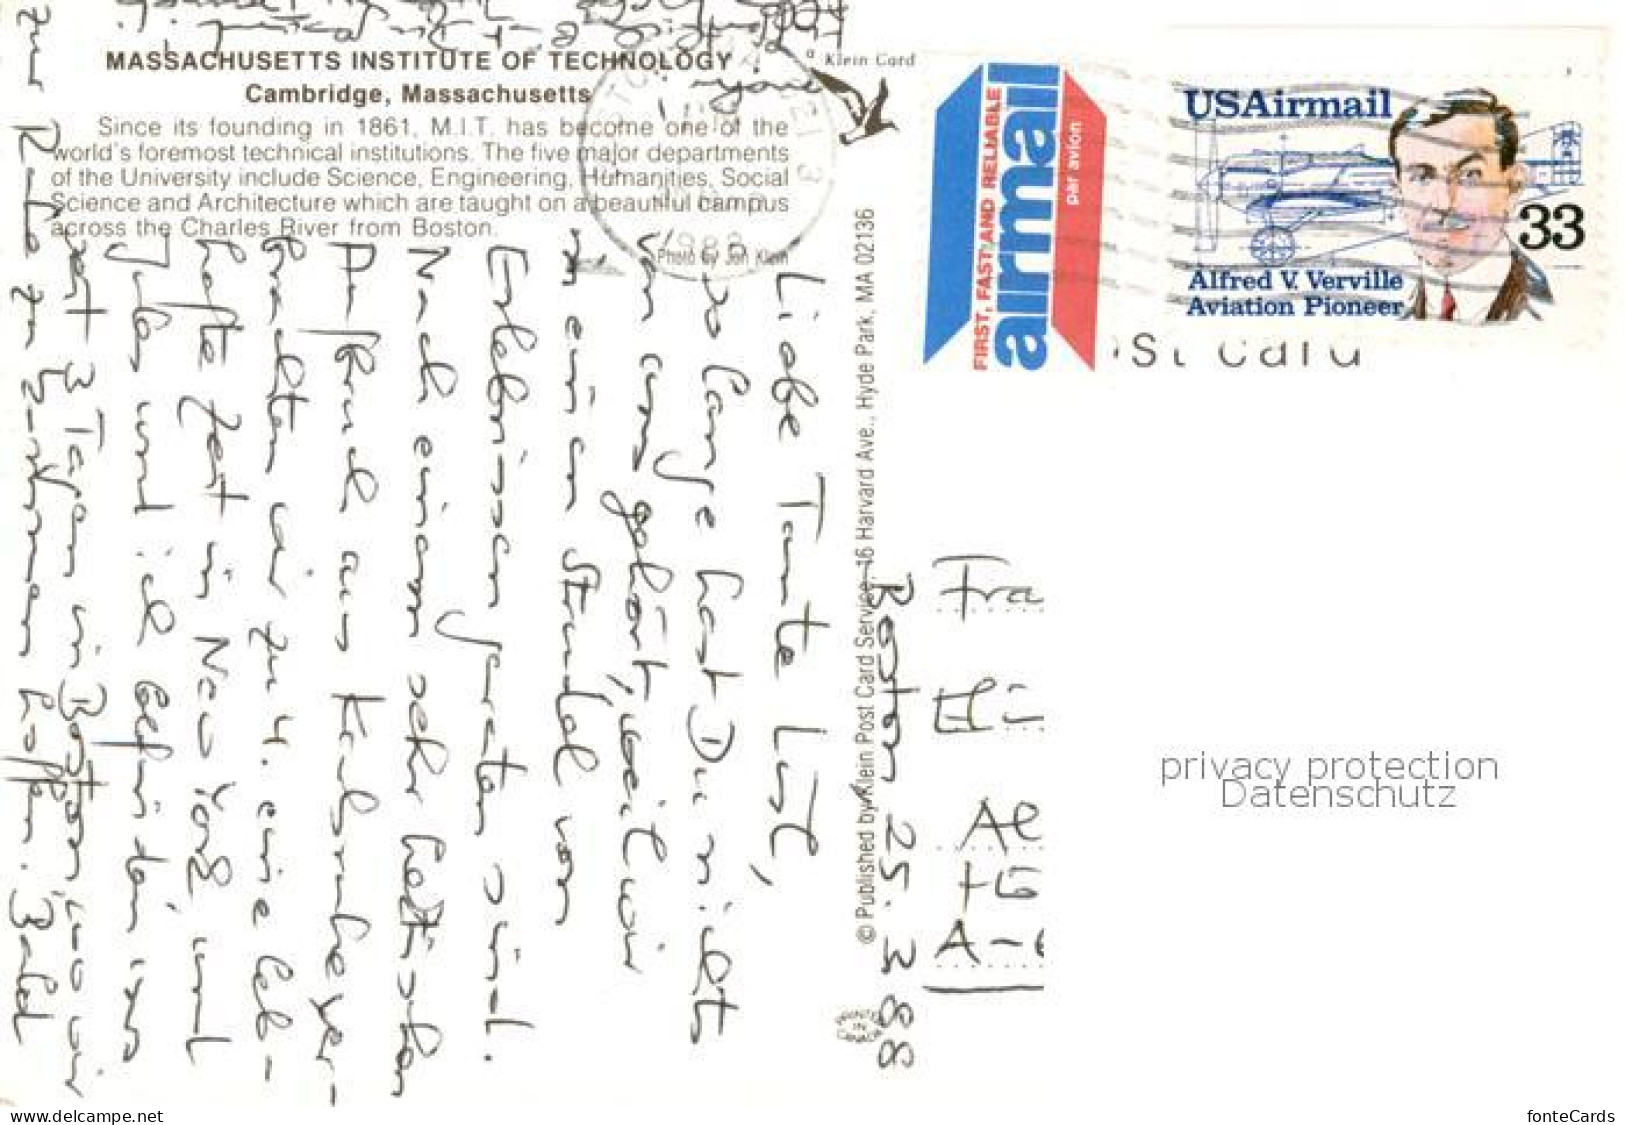 MASSACHUSETTS INSTITUTE OF TECHNOLOGY
Cambridge, Massachusetts
Since its founding in 1861, M.I.T. has become one of the
world's foremost technical institutions. The five major departments
of the University include Science, Engineering, Humanities, Social
Science and Architecture which are taught on a beautiful campus
across the Charles River from Boston.
Photo by Jon Klein
a Klein Card
© Published by Klein Post Card Service, 46 Harvard Ave., Hyde Park, MA 02136
PRINTED IN CANADA
FIRST, FAST AND RELIABLE
airmail
par avion
USAirmail
33
Alfred V. Verville
Aviation Pioneer
ost Card
Boston 25. 3 88
Liebe Tante List,
so lange hast Du nichts
von uns gehört, weil wir
in einem Strudel von
Erlebnissen geraten sind.
Nach einem sehr hektischen
Aufbruch aus
brachten wir zu 4. eine leb-
hafte Zeit in New York und
Jules und ich befinden uns
seit 3 Tagen in Boston, wo wir
zur Ruhe zu kommen hoffen. Bald
Fra
Al
+G
A-
privacy protection
Datenschutz
www.delcampe.net
fonteCards